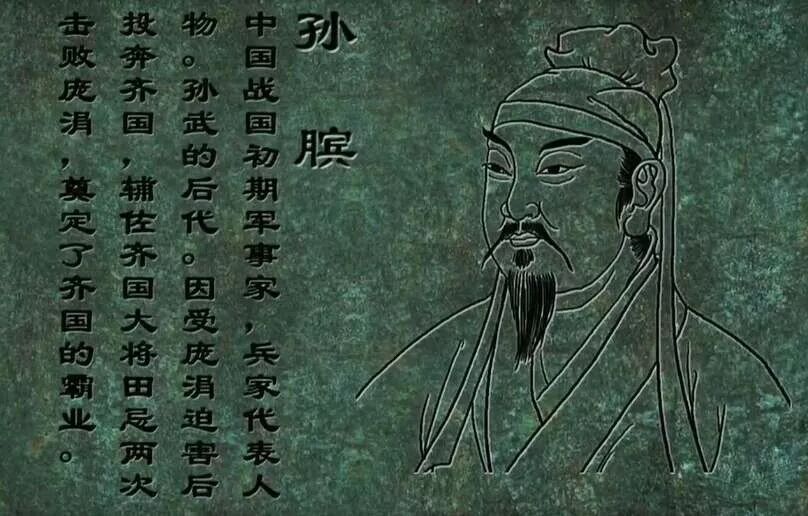 孙膑
中国战国初期军事家，兵家代表人
物。孙武的后代。因受庞涓迫害后
投奔齐国，辅佐齐国大将田忌两次
击败庞涓，奠定了齐国的霸业。